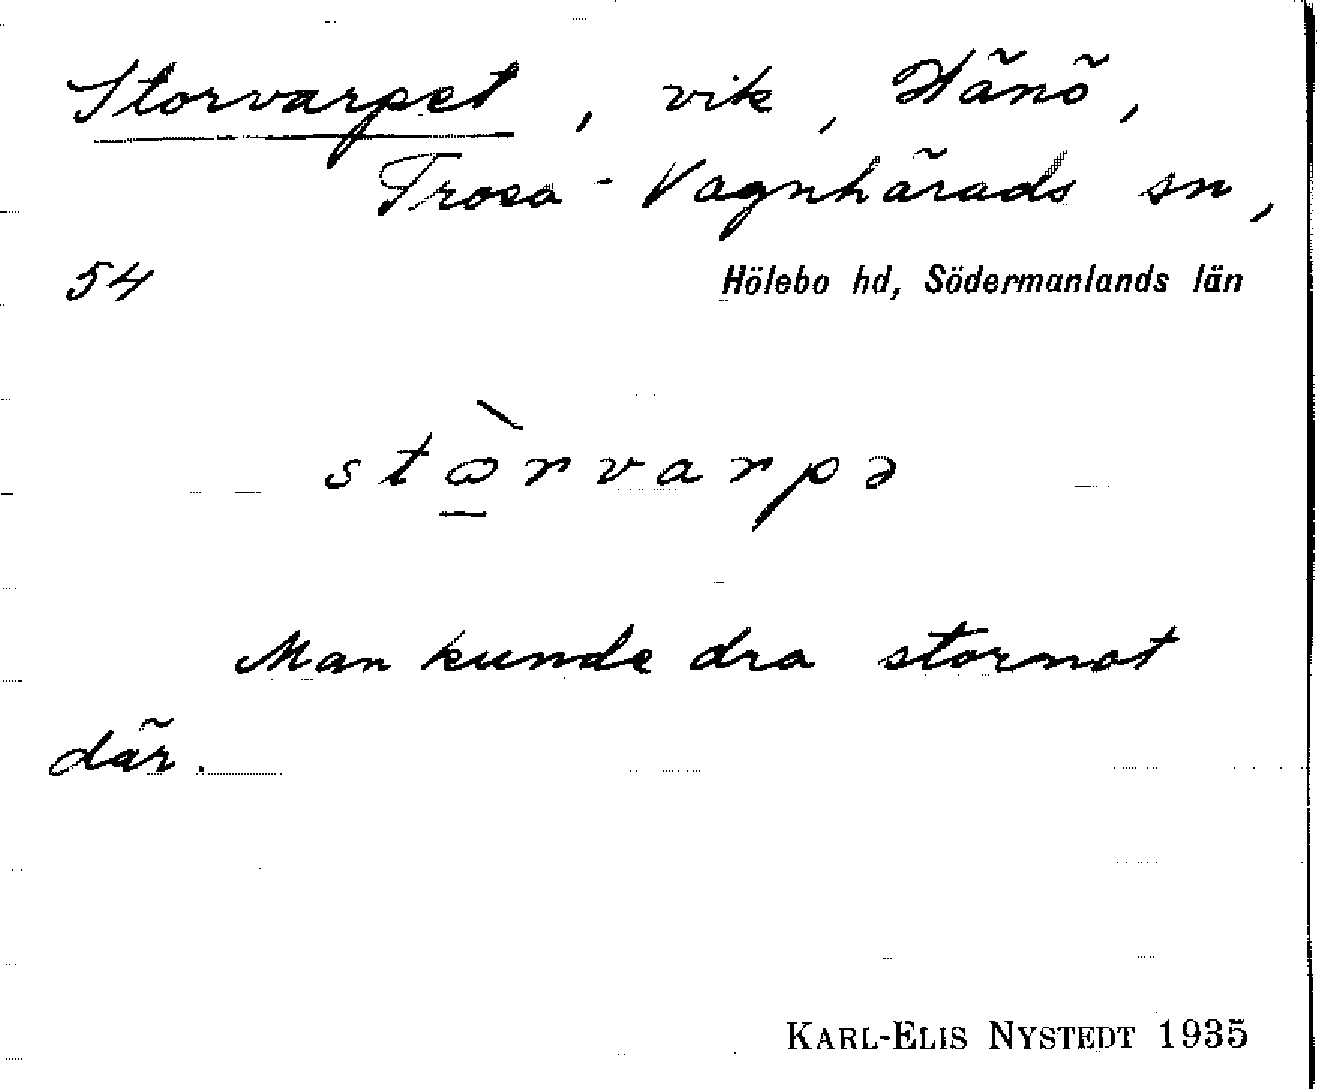 Storvarpet, vik, Hänö,
Trosa-Vagnhärads sn,
54 Hölebo hd, Södermanlands län
stɷ̠̀rvarpə
Man kunde dra stornot
där.
KARL-ELIS NYSTEDT 1935